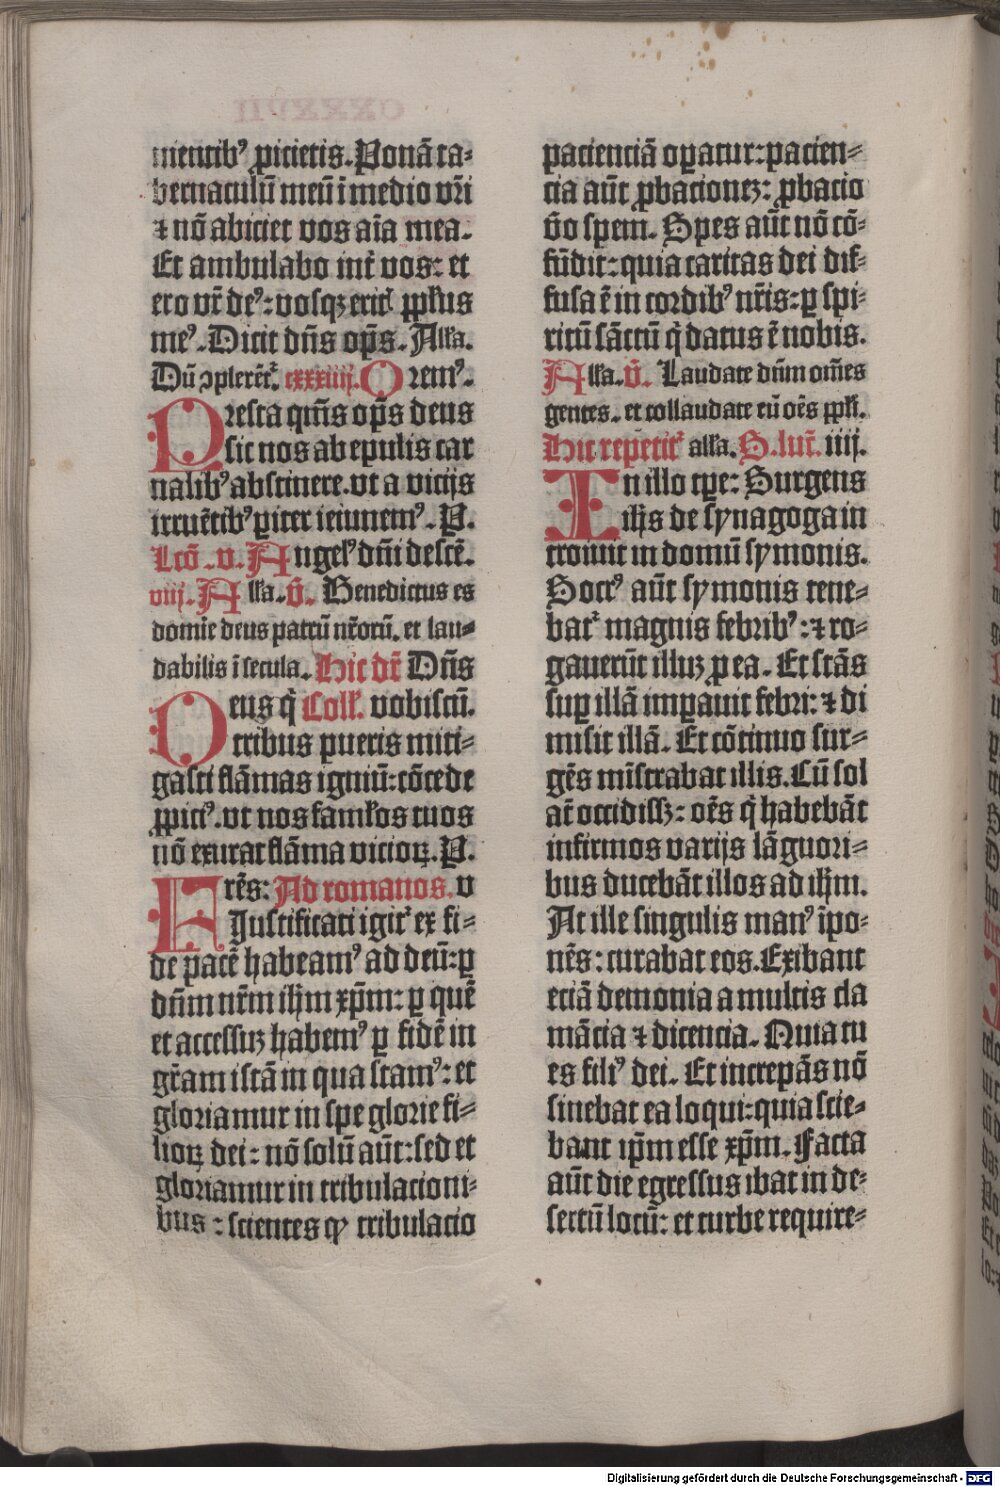 mentibꝰ ꝓicietis. Ponā ta⸗
bernaculū meū ī medio vr̄i
⁊ nō abiciet vos aīa mea.
Et ambulabo int̄ vos: et
ero vr̄ deꝰ: vosqꝫ erit᷑ pp̄lus
meꝰ. Dicit dn̄s op̄s. Alľa.
Dū ↄplerēt᷑. cxxxiiij. Oremꝰ.
Presta qm̄s op̄s deus
sic nos ab epulis car
nalibꝰ abstinere. vt a vicijs
irruētibꝰ ꝑiter ieiunemꝰ. P.
Lcō. v. Angelꝰ dn̄i descē.
viij. Alľa. v̄. Benedictus es
domīe deus patrū nr̄orū. et lau⸗
dabilis ī secula. Hic dr̄ Dn̄s
Deus q̇ Colľ. vobiscū.
tribus pueris miti⸗
gasti flāmas igniū: cōcede
ꝓpiciꝰ. vt nos famľos tuos
nō exurat flāma vicioꝝ. P.
Frēs: Ad romanos. v
Justificati igit᷑ ex fi⸗
de pacē habeamꝰ ad deū: ꝑ
dn̄m nr̄m ih̄m xp̄m: ꝑ quē
et accessuꝫ habemꝰ ꝑ fidē in
gr̄am istā in qua stamꝰ: et
gloriamur in spe glorie fi⸗
lioꝝ dei: nō solū aūt: sed et
gloriamur in tribulacioni⸗
bus: scientes ꝙ tribulacio
pacienciā oꝑatur: pacien⸗
cia aūt ꝓbacioneꝫ: ꝓbacio
v̄o spem. Spes aūt nō cō⸗
fūdit: quia caritas dei dif⸗
fusa ē in cordibꝰ nr̄is: ꝑ spi⸗
ritū sāctū q̇ datus ē nobis.
Alľa. v̄. Laudate dn̄m om̄es
gentes. et collaudate eū oēs pp̄lī.
Hic repetit᷑ alľa. S. luc̄. iiij.
In illo tꝑe: Surgens
ih̄s de synagoga in
troiuit in domū symonis.
Socrꝰ aūt symonis tene⸗
bat᷑ magnis febribꝰ: ⁊ ro⸗
gauerūt illuꝫ ꝓ ea. Et stās
suꝑ illā imꝑauit febri: ⁊ di
misit illā. Et cōtinuo sur⸗
gēs mīstrabat illis. Cū sol
at̄ occidissꝫ: oēs q̇ habebāt
infirmos varijs lāguori⸗
bus ducebāt illos ad ih̄m.
At ille singulis manꝰ īpo⸗
nēs: curabat eos. Exibant
eciā demonia a multis cla
mācia ⁊ dicencia. Quia tu
es filiꝰ dei. Et increpās nō
sinebat ea loqui: quia scie⸗
bant ip̄m esse xp̄m. Facta
aūt die egressus ibat in de⸗
sertū locū: et turbe require⸗
Digitalisierung gefördert durch die Deutsche Forschungsgemeinschaft - DFG